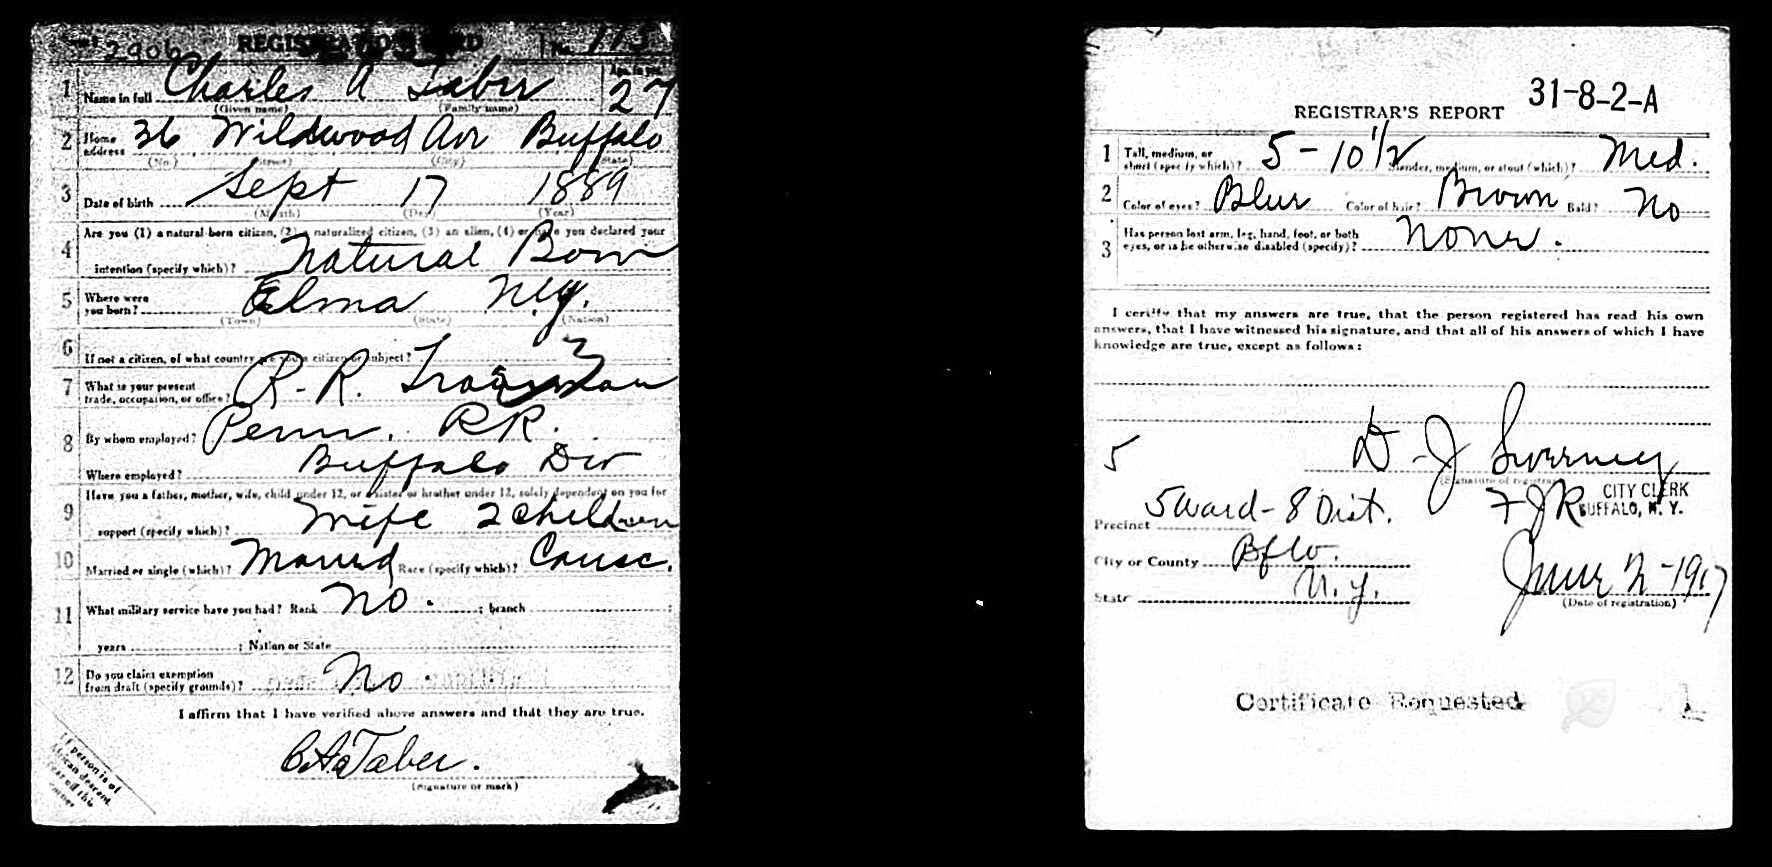 2906 REGISTRATION CARD No. 113
1 Name in full Charles A Taber 27
(Given name) (Family name)
2 Home address 36 Wildwood Av Buffalo
(No.) (Street) (City) (State)
3 Date of birth Sept 17 1889
(Month) (Day) (Year)
4 Are you (1) a natural-born citizen, (2) a naturalized citizen, (3) an alien, (4) or have you declared your
intention (specify which)? Natural Born
5 Where were you born? Elma N.y.
(Town) (State) (Nation)
6 If not a citizen, of what country are you a citizen or subject?
7 What is your present trade, occupation, or office? R.R.
8 By whom employed? Penn. RR.
Where employed? Buffalo Div
9 Have you a father, mother, wife, child under 12, or a sister or brother under 12, solely dependent on you for
support (specify which)? Wife 2 children
10 Married or single (which)? Married Race (specify which)? Cauc.
11 What military service have you had? Rank No. ; branch ;
years ; Nation or State
12 Do you claim exemption from draft (specify grounds)? No.
I affirm that I have verified above answers and that they are true.
C A Taber.
(Signature or mark)
If person is of
African descent,
tear off this
corner
31-8-2-A
REGISTRAR'S REPORT
1 Tall, medium, or short (specify which)? 5-10 1/2 Slender, medium, or stout (which)? Med.
2 Color of eyes? Blue Color of hair? Brown Bald? No
3 Has person lost arm, leg, hand, foot, or both
eyes, or is he otherwise disabled (specify)? None.
I certify that my answers are true, that the person registered has read his own
answers, that I have witnessed his signature, and that all of his answers of which I have
knowledge are true, except as follows:
5 D. J Sweeney
(Signature of registrar)
CITY CLERK
BUFFALO, N. Y.
Precinct 5 Ward-8 Dist.
City or County Bflo.
State N.y. June 2-1917
(Date of registration)
Certificate Requested
1